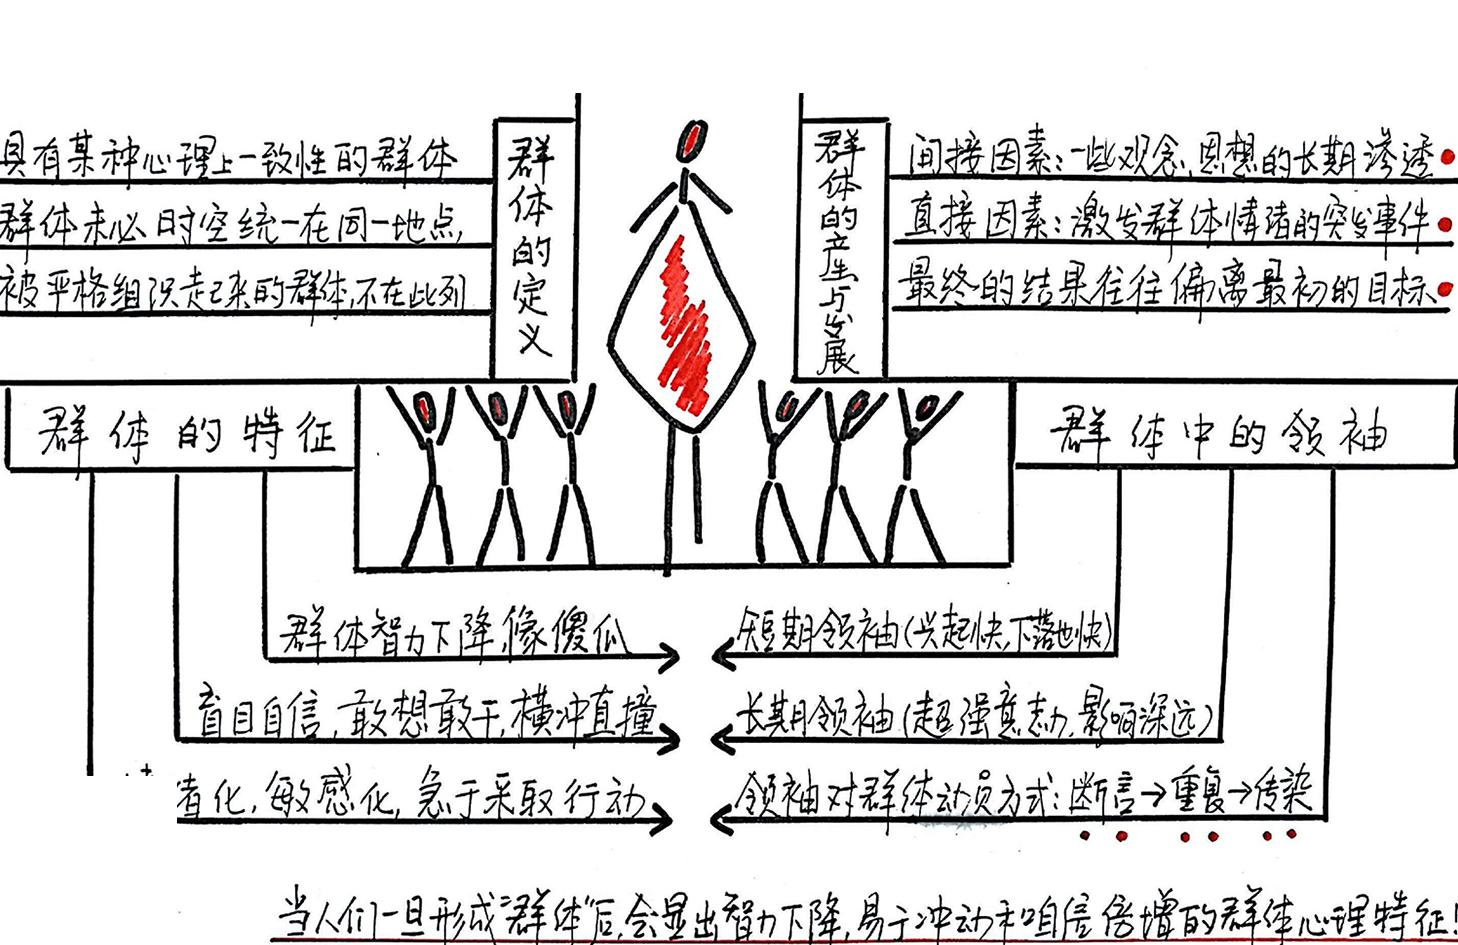 具有某种心理上一致性的群体
群体未必时空统一在同一地点,
被严格组织起来的群体,不在此列
群体的定义
群体的产生与发展
间接因素:一些观念、思想的长期渗透
直接因素:激发群体情绪的突发事件
最终的结果往往偏离最初的目标
群体的特征
群体中的领袖
群体智力下降,像傻瓜
盲目自信,敢想敢干,横冲直撞
化,敏感化,急于采取行动
短期领袖(兴起快,下落也快)
长期领袖(超强意志力,影响深远)
领袖对群体动员方式:断言→重复→传染
当人们一旦形成“群体”后,会显出智力下降,易于冲动和自信倍增的群体心理特征!